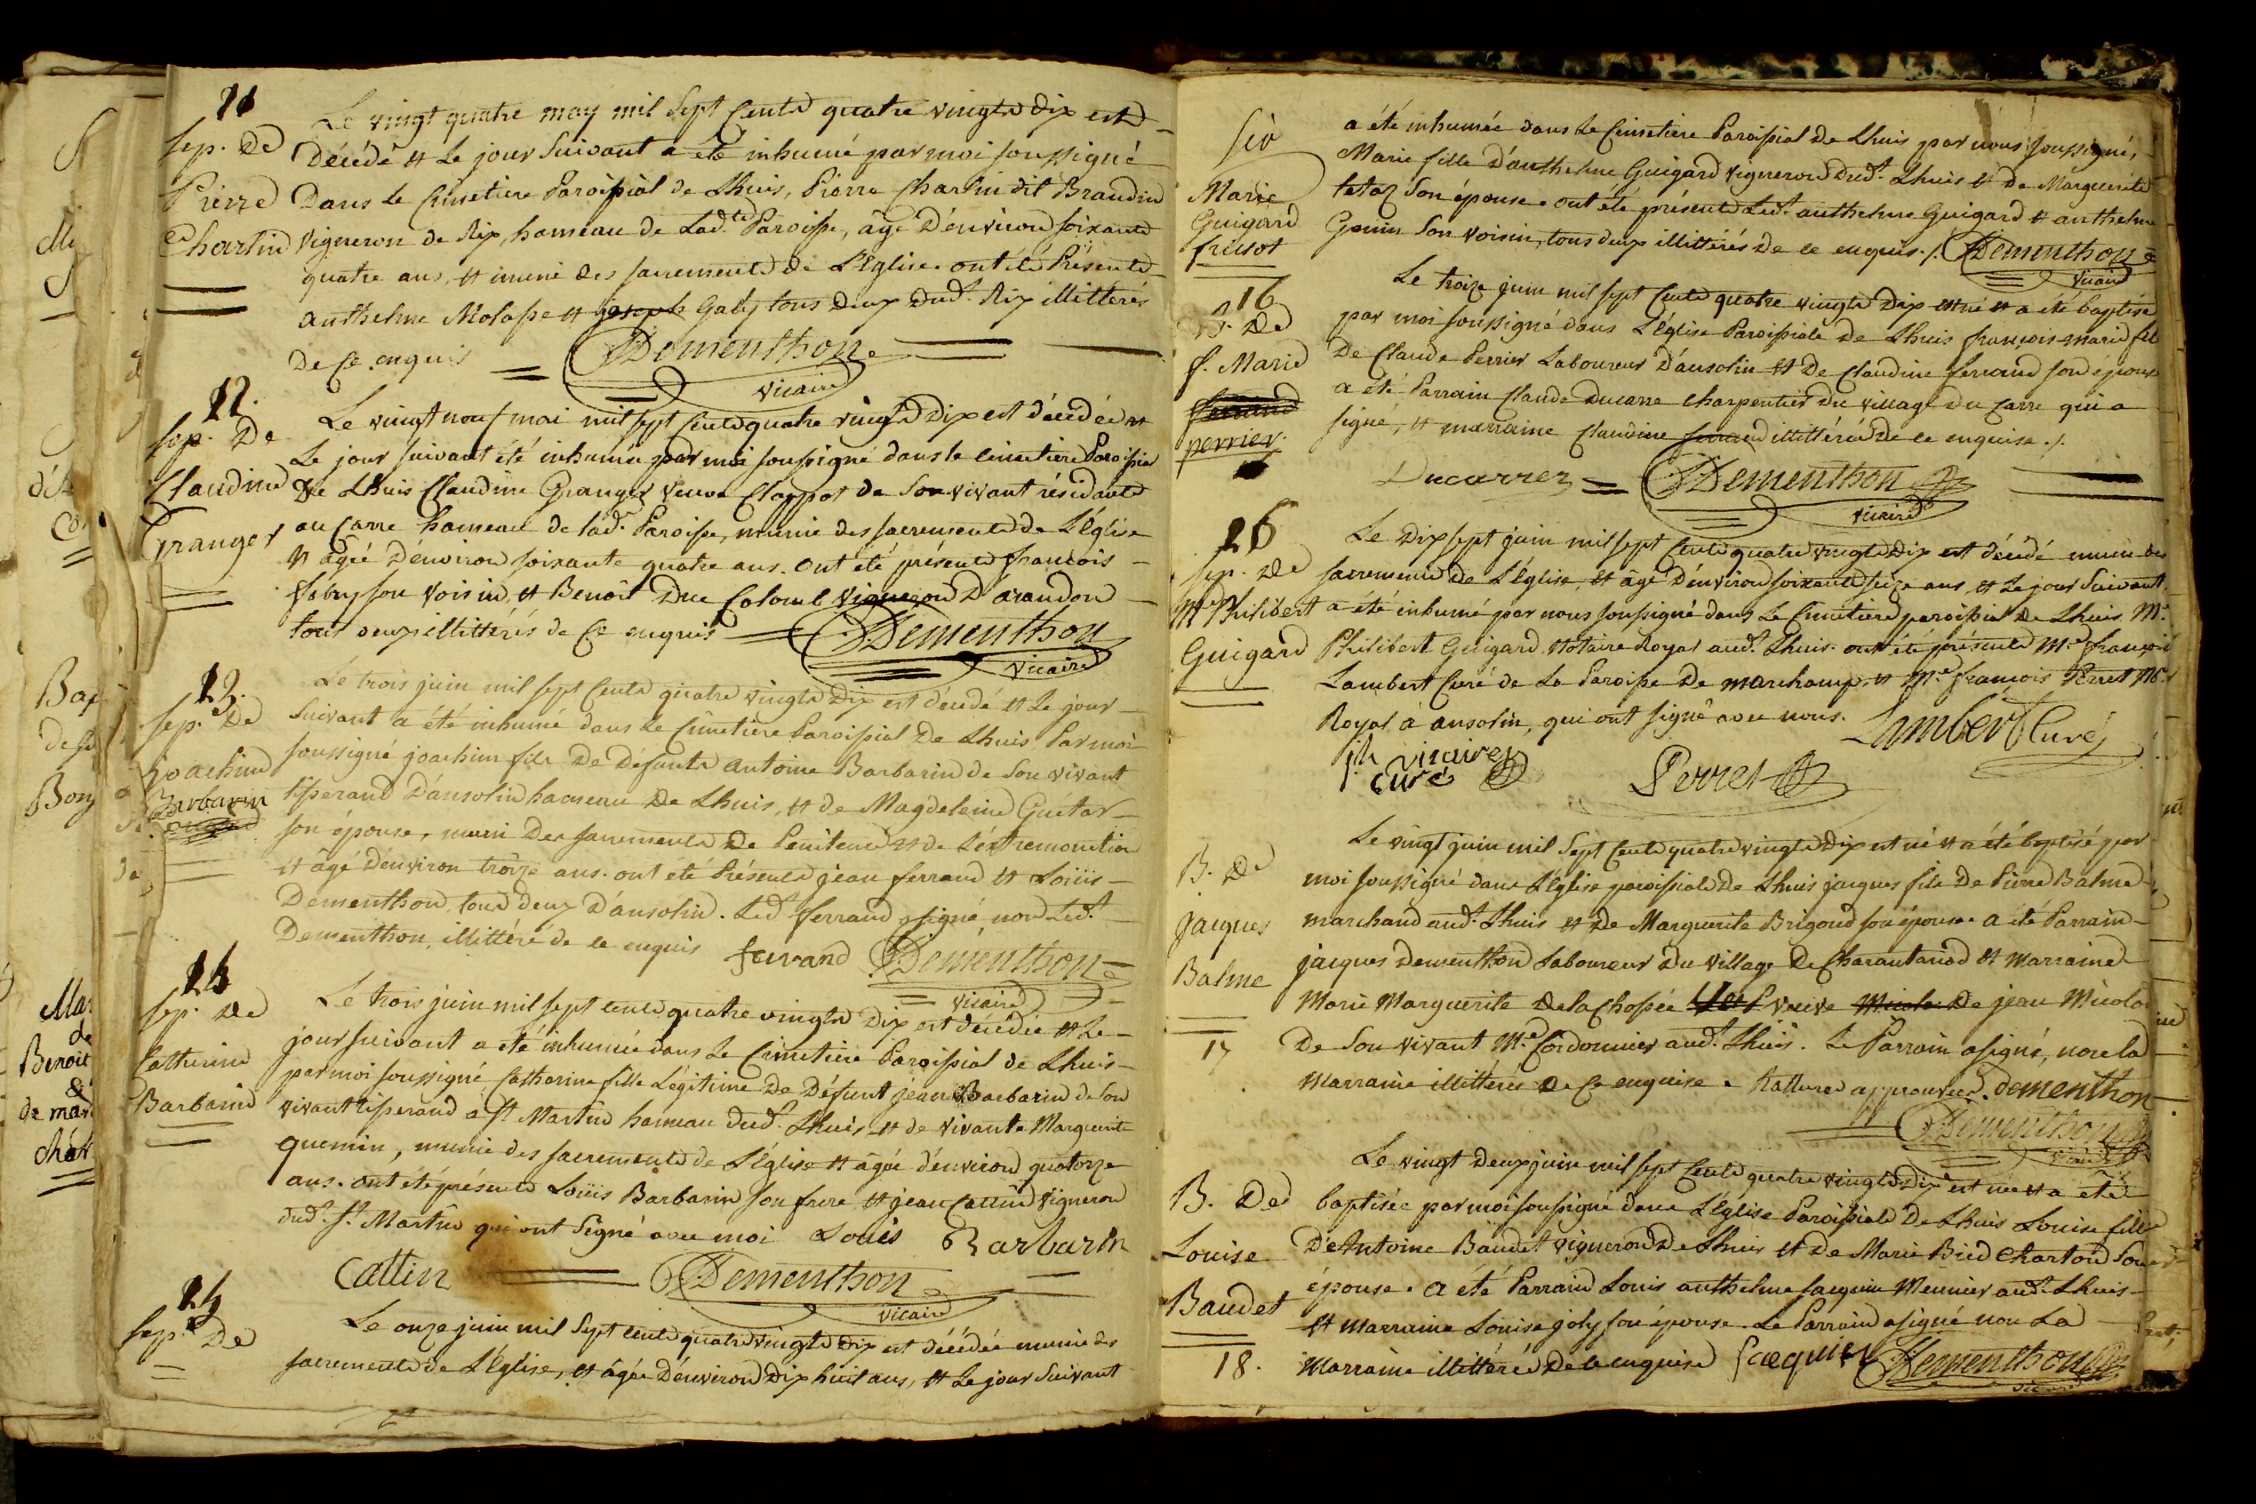 11
Sep. De
Pierre
Chartin
Le vingt quatre may mil Sept Cents quatre vingts dix est
Décédé et Le jour Suivant a été inhumé par moi soussigné
Dans Le Cimetiere Paroissial de Lhuis, Pierre Chartin dit Brandin
Vigneron de Rix, hameau de Lad.te Paroisse, âgé D'environ soixante
quatre ans, et muni des sacrements de L'Eglise. ont été Présents
Anthelme Molasse et joseph Galy tous deux dud.t Rix illitterés
De Ce enquis
Dementhon
vicaire
12.
Sep. De
Claudine
Granger
Le vingt neuf mai mil sept Cents quatre vingts Dix est décédée et
Le jour suivant été inhumée par moi soussigné dans le cimetiere Paroissial
De Lhuis Claudine Granger veuve Clappot de Son vivant résidante
au Carre hameau de lad.te Paroisse, munie des sacrements de L'Église
et âgée D'environ soixante quatre ans. Ont été présents françois
fabry son voisin et Benoit Duc Colomb vigneron D'arandon
tous deux illittérés de Ce enquis
Dementhon
vicaire
13.
Sep. De
joachim
Barbarin
Le trois juin mil sept Cents quatre vingts Dix est décédé et Le jour
Suivant a été inhumé dans Le Cimetiere Paroissial De Lhuis Par moi
soussigné joachim fils De Défunts antoine Barbarin de Son vivant
tisserand D'ansolin hameau de Lhuis, et de Magdeleine Guétar
son épouse, muni Des sacrements De Penitence et de L'éxtremonction
et âgé D'environ trèize ans. ont été Présents jean ferrand et Loüis
Dementhon, tous deux D'ansolin. Led.t ferrand a signé, non Led.t
Dementhon, illittéré de ce enquis ferrand Dementhon
vicaire
14
Sep. De
Catherine
Barbarin
Le trois juin mil sept cents quatre vingts Dix est décédée et Le
jour suivant a été inhumée dans Le Cimetiere Paroissial de Lhuis
par moi soussigné, Catherine fille Légitime De Défunt jean Barbarin de Son
vivant tisserand a St Martin hameau dud.t Lhuis et de vivante Marguerite
Quemin, munie des sacrements de L'Église et âgée d'environ quatorze
ans. ont été présents Loüis Barbarin son frere et jean Cattin vigneron
dud.t St Martin qui ont Signé avec moi Louis Barbarin
Cattin Dementhon
vicaire
15
Sep. De
Le onze juin mil Sept cents quatre vingts dix est décédée munie des
sacrements de L'Église, et âgée D'environ Dix huit ans, et Le jour Suivant
Marie
Guigard
a été inhumée dans Le Cimetiere Paroissial De Lhuis par nous soussigné,
Marie fille D'anthelme Guigard vigneron Dud.t Lhuis et De Marguerite
tetaz Son épouse. ont été présents Led.t anthelme Guigard et anthelme
Genin Son voisin, tous deux illittérés De ce enquis ./. Dementhon
vicaire
16
B. De
f. Marie
perrier.
Le treize juin mil sept Cents quatre vingts Dix est né et a été baptisé
par moi soussigné dans L'église Paroissiale De Lhuis françois marie fils
De Claude Perrier Laboureur D'ansolin et De Claudine ferrand son épouse
a été Parrain Claude Ducarre charpentier du village du Carre qui a
signé, et marraine Claudine ferrand illittérée De ce enquise ./.
Ducarrez Dementhon
vicaire
16
Sep. De
Me Philibert
Guigard
Le Dix sept juin mil sept Cents quatre vingts Dix est décédé muni des
sacrements de L'Église, et âgé D'environ soixante seize ans, et Le jour Suivant
a été inhumé par nous soussigné dans Le Cimetiere paroissial De Lhuis Me
Philibert Guigard Notaire Royal aud.t Lhuis. ont été présents Me françois
Lambert Curé de La Paroisse De marchamp et Me françois Perret Nre
Royal à ansolin, qui ont signé avec nous. Lambert Curé
curé Perret
B. De
jacques
Balme
17
Le vingt juin mil Sept Cents quatre vingts Dix est né et a été baptisé par
moi soussigné dans L'Eglise paroissiale De Lhuis jacques fils De Pierre Balme
marchand aud.t Lhuis et de Marguerite Brigoud son épouse. a été Parrain
jacques Dementhon Laboureur du village De Charantanod et Marraine
Marie Marguerite De la Chossée veuve Micola De jean Micola
De Son vivant Me Cordonnier aud.t Lhuis. Le Parrain a signé, non la
Marraine illittérée De Ce enquise. Ratures approuvées. Dementhon
Dementhon
vicaire
B. De
Louise
Baudet
18.
Le vingt Deux juin mil sept Cents quatre vingts Dix est née et a été
baptisée par moi soussigné dans L'Eglise Paroissiale De Lhuis Louise fille
D'Antoine Baudet vigneron De Lhuis et De Marie Bied Charton Son
épouse. a été Parrain Louis anthelme jacquin Meunier aud.t Lhuis
et Marraine Loüise joly son épouse. Le Parrain a signé non La
Marraine illittérée De ce enquise Dementhon
vicaire